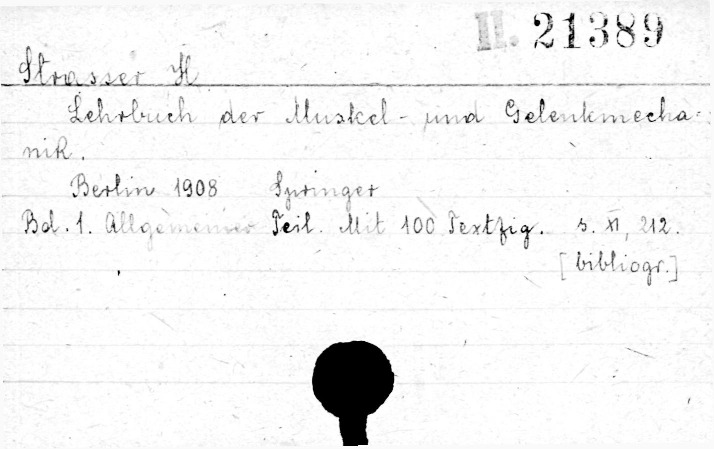 II. 21389
Strasser H
Lehrbuch der Muskel- und Gelenkmecha-
nik.
Berlin 1908 Springer
Bd. 1. Allgemeiner Teil. Mit 100 Textfig. s. XI, 212.
[bibliogr.]